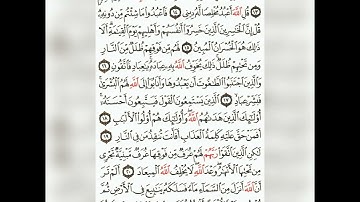 ١٣ قُلِ ٱللَّهَ أَعْبُدُ مُخْلِصًا لَّهُۥ دِينِى ١٤ فَٱعْبُدُوا۟ مَا شِئْتُم مِّن دُونِهِۦ
قُلْ إِنَّ ٱلْخَـٰسِرِينَ ٱلَّذِينَ خَسِرُوٓا۟ أَنفُسَهُمْ وَأَهْلِيهِمْ يَوْمَ ٱلْقِيَـٰمَةِ أَلَا
ذَٰلِكَ هُوَ ٱلْخُسْرَانُ ٱلْمُبِينُ ١٥ لَهُم مِّن فَوْقِهِمْ ظُلَلٌ مِّنَ ٱلنَّارِ
وَمِن تَحْتِهِمْ ظُلَلٌ ذَٰلِكَ يُخَوِّفُ ٱللَّهُ بِهِۦ عِبَادَهُۥ يَـٰعِبَادِ فَٱتَّقُونِ ١٦
وَٱلَّذِينَ ٱجْتَنَبُوا۟ ٱلطَّـٰغُوتَ أَن يَعْبُدُوهَا وَأَنَابُوٓا۟ إِلَى ٱللَّهِ لَهُمُ ٱلْبُشْرَىٰ
فَبَشِّرْ عِبَادِ ١٧ ٱلَّذِينَ يَسْتَمِعُونَ ٱلْقَوْلَ فَيَتَّبِعُونَ أَحْسَنَهُۥٓ
أُو۟لَـٰٓئِكَ ٱلَّذِينَ هَدَىٰهُمُ ٱللَّهُ وَأُو۟لَـٰٓئِكَ هُمْ أُو۟لُوا۟ ٱلْأَلْبَـٰبِ
١٨ أَفَمَنْ حَقَّ عَلَيْهِ كَلِمَةُ ٱلْعَذَابِ أَفَأَنتَ تُنقِذُ مَن فِى ٱلنَّارِ ١٩
لَـٰكِنِ ٱلَّذِينَ ٱتَّقَوْا۟ رَبَّهُمْ لَهُمْ غُرَفٌ مِّن فَوْقِهَا غُرَفٌ مَّبْنِيَّةٌ تَجْرِى
مِن تَحْتِهَا ٱلْأَنْهَـٰرُ وَعْدَ ٱللَّهِ لَا يُخْلِفُ ٱللَّهُ ٱلْمِيعَادَ ٢٠ أَلَمْ تَرَ
أَنَّ ٱللَّهَ أَنزَلَ مِنَ ٱلسَّمَآءِ مَآءً فَسَلَكَهُۥ يَنَـٰبِيعَ فِى ٱلْأَرْضِ ثُمَّ